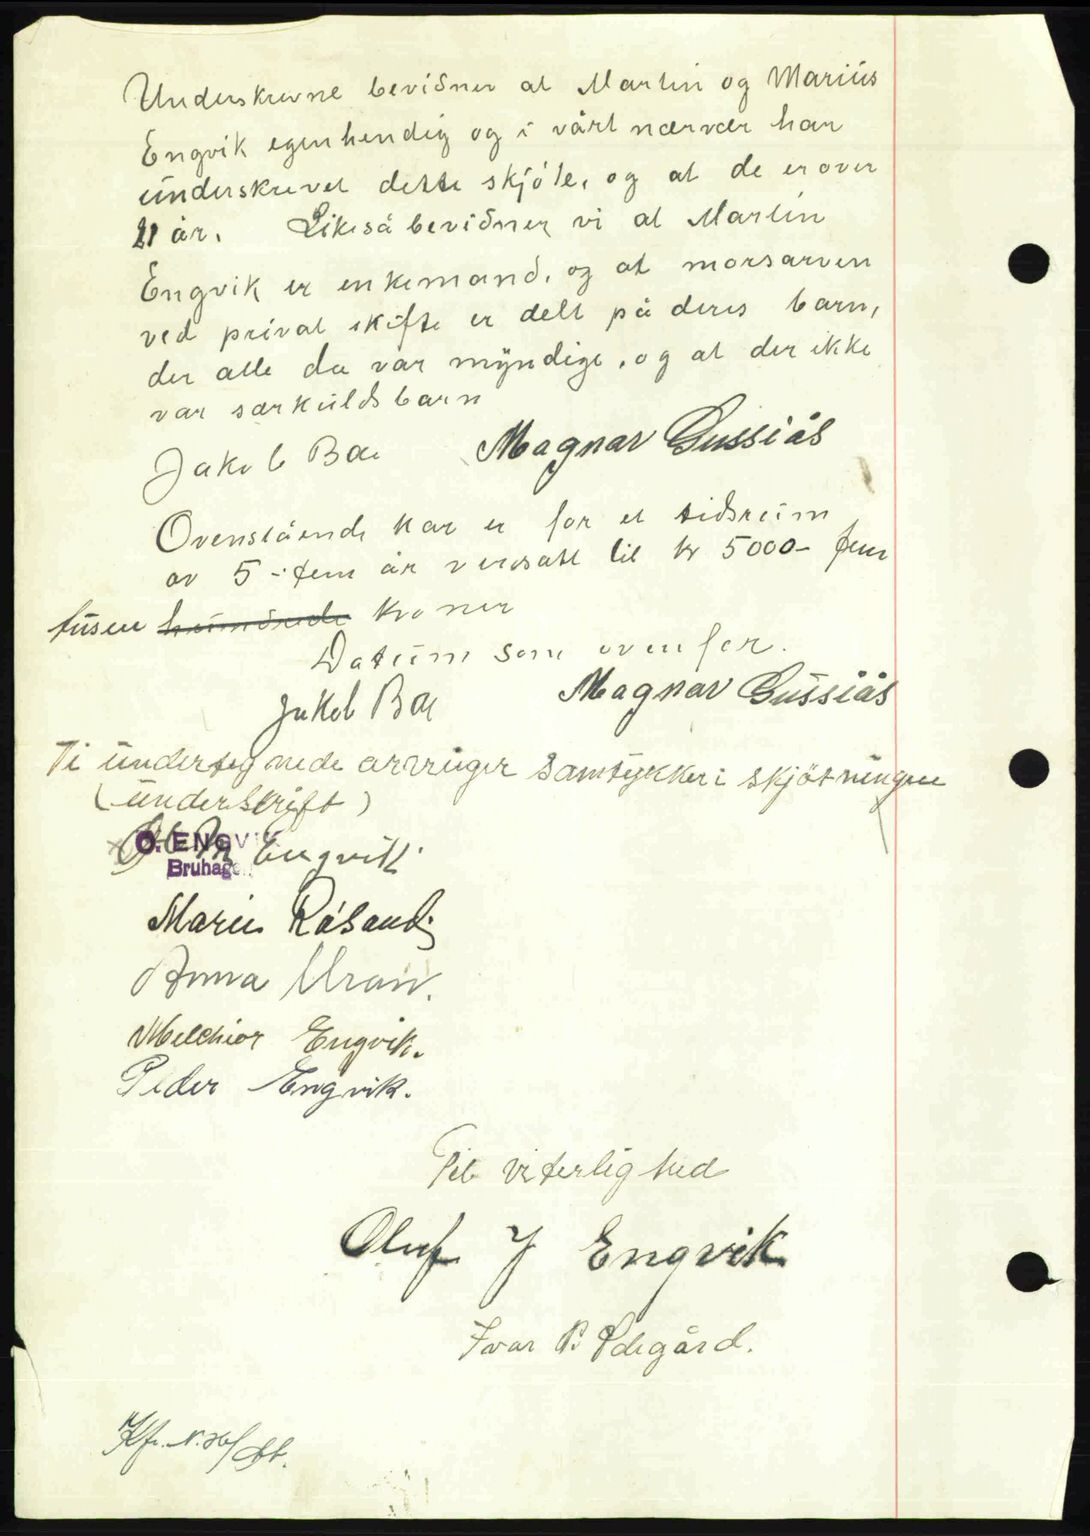 Underskrevne bevidner at Martin og Marius
Engvik egenhendig og i vårt nærvær har
underskrevet dette skjöte, og at de er over
21 år. Likeså bevidner vi at Martin
Engvik er enkemand, og at morsarven
ved privat skifte er delt på deres barn,
der alle da var myndige, og at der ikke
var særkuldsbarn
Jakob Bae Magnar Gussiås
Ovenstående kar er for et tidsrum
av 5 - fem år verdsatt til kr 5000- fem
tusen hundrede kroner
Datum som ovenfor.
Jakob Bae Magnar Gussiås
Vi undertegnede arvinger samtykker i skjötningen
(underskrift)
O. ENGVIK
Bruhagen
Engvik
Marie Råsand
Anna Uran.
Melchior Engvik.
Peder Engvik.
Til viterlighed
Oluf J Engvik
Ivar P. Ödegård.
Kfr.